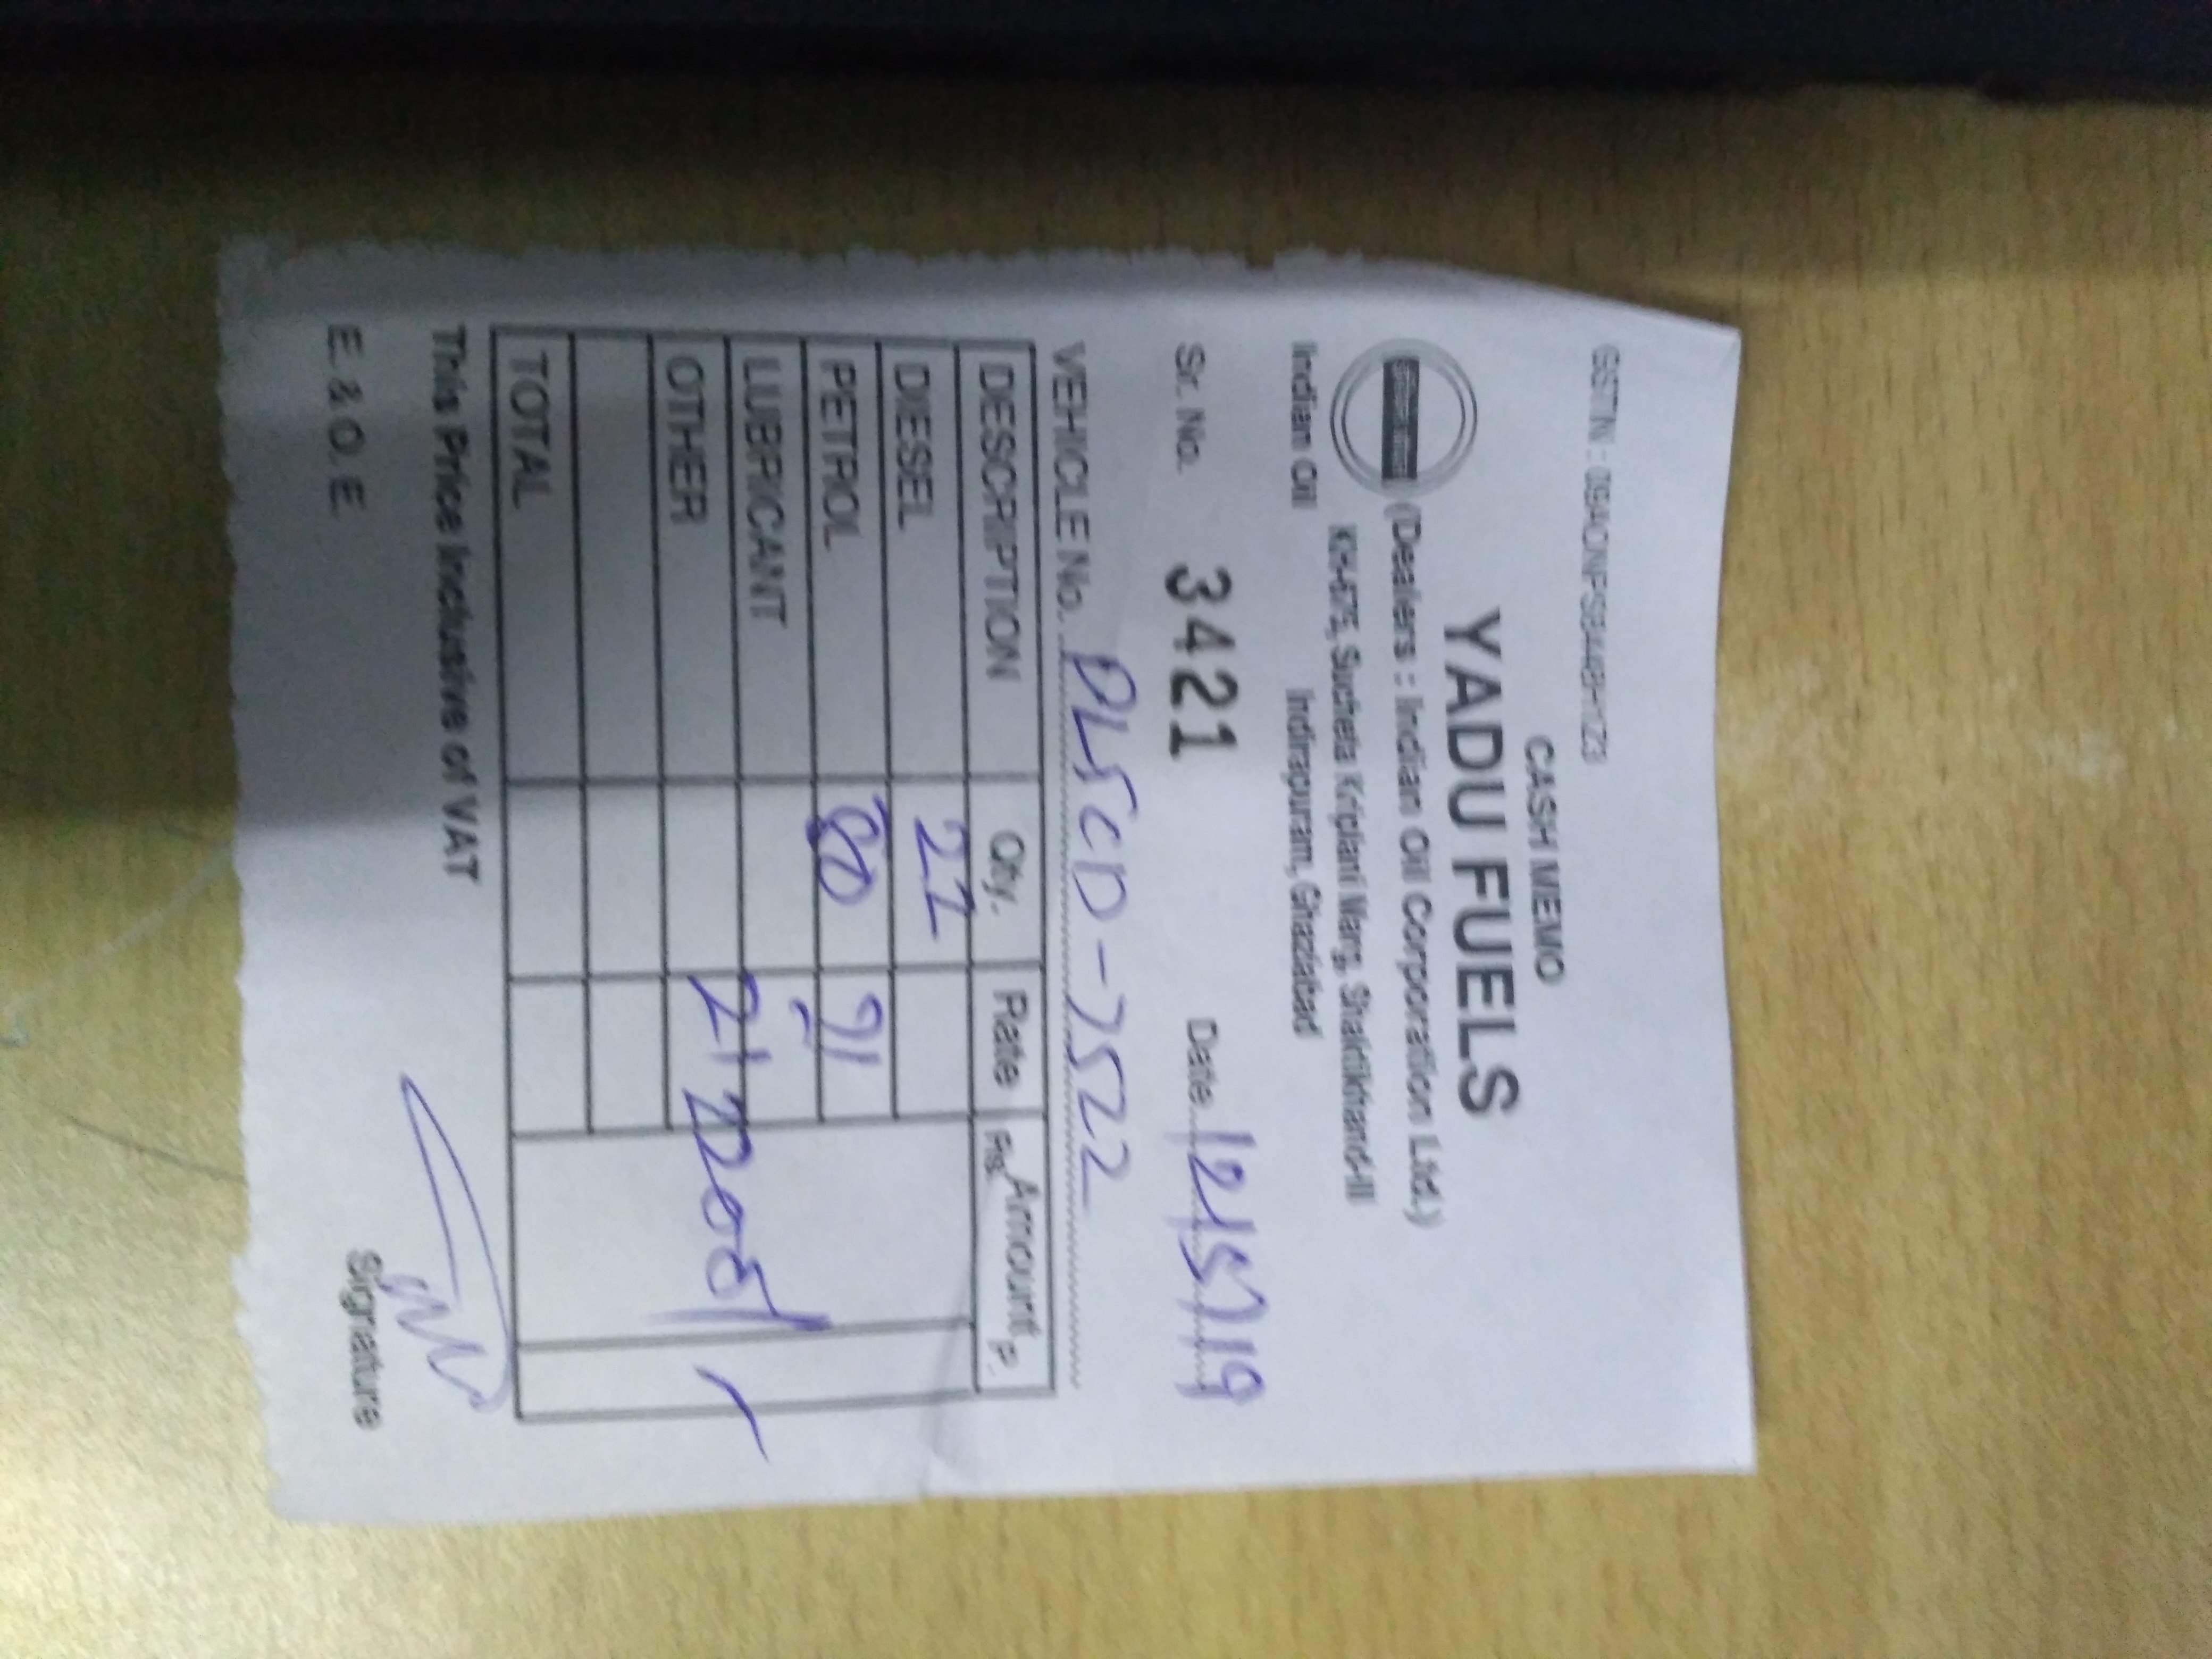 GSTIN : 09AONPS8448H1Z3
CASH MEMO
YADU FUELS
(Dealers : Indian Oil Corporation Ltd.)
KH-675, Sucheta Kriplani Marg, Shaktikhand-III
Indian Oil
Indirapuram, Ghaziabad
Sr. No. 3421 Date 12/5/19
VEHICLE No. DL5CD-7522
DESCRIPTION Qty. Rate Rs. Amount P.
DIESEL 22
PETROL 80 91
LUBRICANT
OTHER 21 2200/-
TOTAL
This Price Inclusive of VAT
E. & O. E. Signature